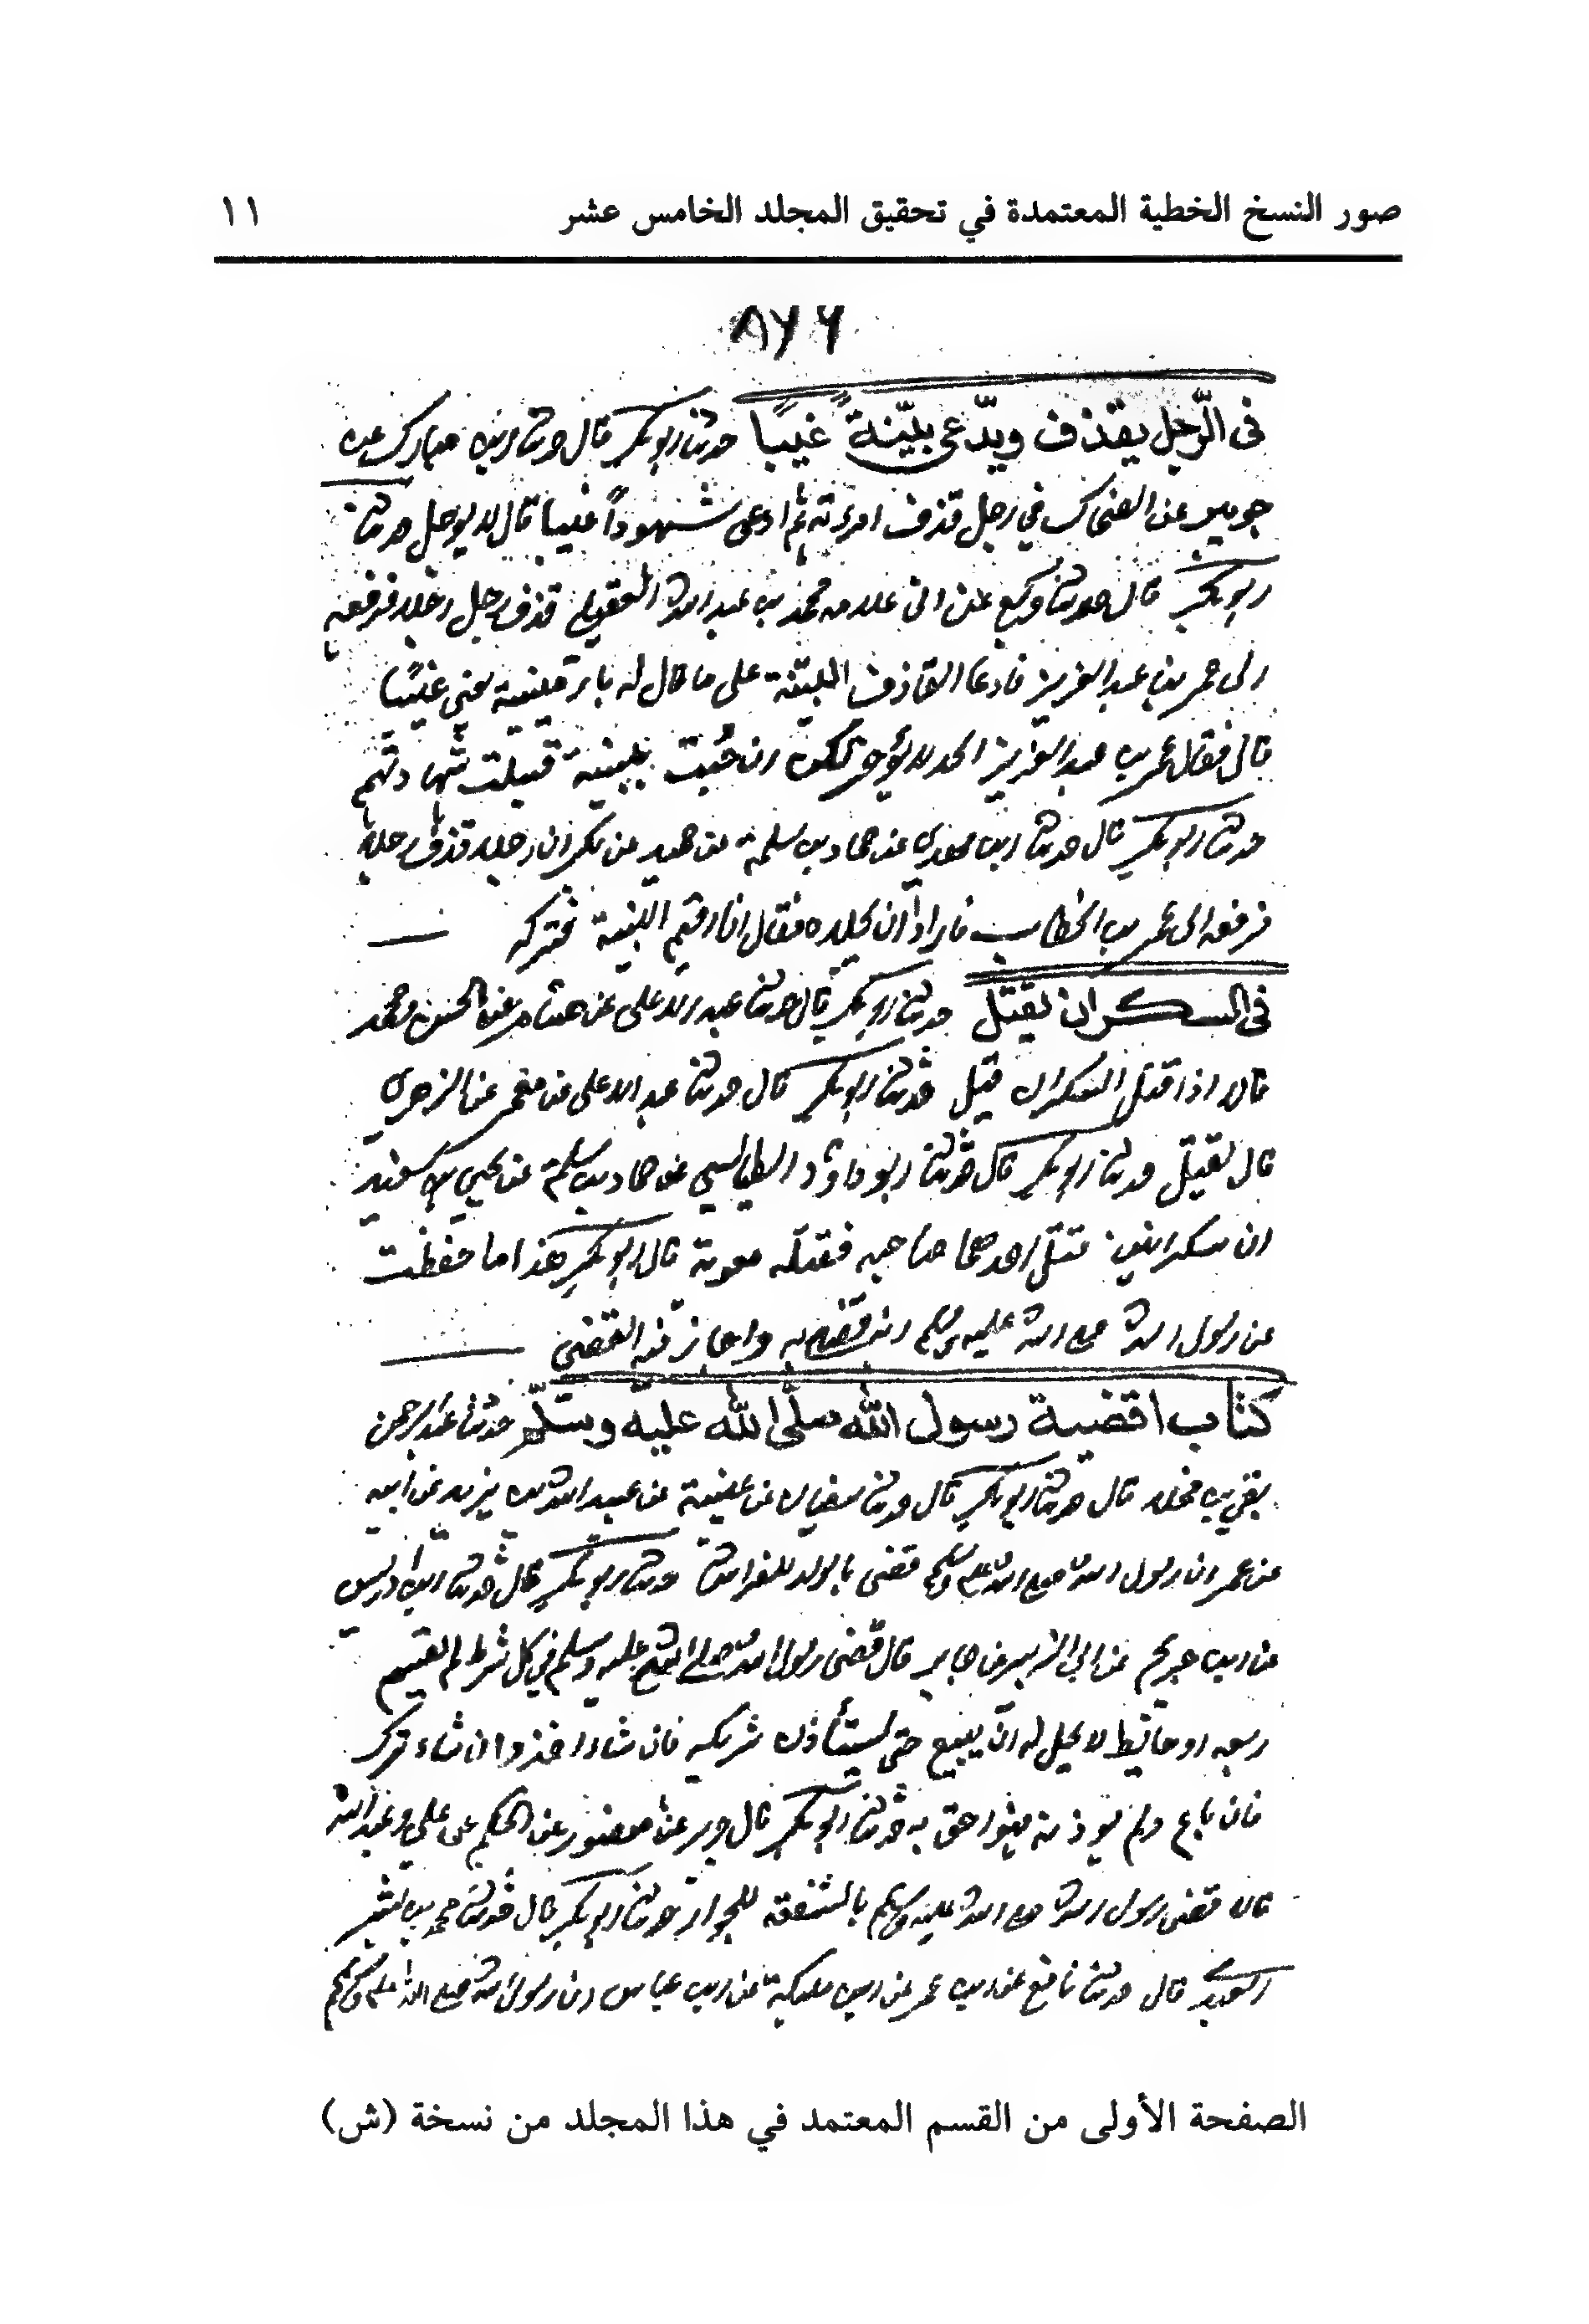 صور النسخ الخطية المعتمدة في تحقيق المجلد الخامس عشر ١١
٨٢٦
فى الرّجل يقذف ويدّعى بيّنة غيبًا حدثنا ابو بكر قال حدثنا ابن مبارك عن
جويبر عن الضحاك في رجل قذف امرءته ثم ادعى شهودًا غيبا قال لا يوجل حدثنا
ابو بكر قال حدثنا وكيع عن ابن علاثه محمد بن عبد الله العقيلي قذف رجل رجلا فرفعه
الى عمر بن عبد العزيز فادعا القاذف البينة على ما قال له بارمينية يعني غيبًا
قال فقال عمر بن عبد العزيز الحد لا يؤخر لكن ان جئت ببينة قبلت شهادتهم
حدثنا ابو بكر قال حدثنا ابن مهدي عن حماد بن سلمة عن حميد عن بكر ان رجلا قذف رجلا
فرفعه الى عمر بن الخطاب فاراد ان يجلده فقال انا اقيم البينة فتركه
فى السكران يقتل حدثنا ابو بكر قال حدثنا عبد الاعلى عن هشام عن الحسن ومحمد
قالا اذا قتل السكران قتل حدثنا ابو بكر قال حدثنا عبد الاعلى عن معمر عن الزهري
قال يقتل حدثنا ابو بكر قال حدثنا ابو داود الطيالسي عن حماد بن سلمة عن يحيى بن سعيد
ان سكرانين قتل احدهما صاحبه فقتله معوية قال ابو بكر هذا ما حفظت
عن رسول الله صلى الله عليه وسلم انه قضى به واجاز فيه القضى
كتاب اقضية رسول الله صلّى الله عليه وسلّم حدثنا عبد الرحمن
بقي بن مخلد قال حدثنا ابو بكر قال حدثنا سفيان عن عيينة عن عبيد الله بن يزيد عن ابيه
عن عمر ان رسول الله صلى الله عليه وسلم قضى بالولد للفراش حدثنا ابو بكر قال حدثنا ابن ادريس
عن ابن جريج عن ابي الزبير عن جابر قال قضى رسول الله صلى الله عليه وسلم في كل شرك لم يقسم
ربعه او حائط لا يحل له ان يبيع حتى يستأذن شريكه فان شاء اخذ وان شاء ترك
فان باع ولم يوذنه فهو احق به حدثنا ابو بكر قال جرير عن منصور عن الحكم عن علي وعبد الله
قالا قضى رسول الله صلى الله عليه وسلم بالشفعة للجوار حدثنا ابو بكر قال حدثنا محمد بن بشر
العبدي قال حدثنا نافع عن ابن عمر عن ابن مليكة عن ابن عباس ان رسول الله صلى الله عليه وسلم
الصفحة الأولى من القسم المعتمد في هذا المجلد من نسخة (ش)